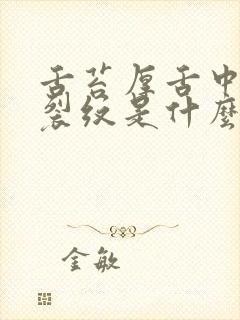 舌苔厚舌中
裂纹是什么
金敏